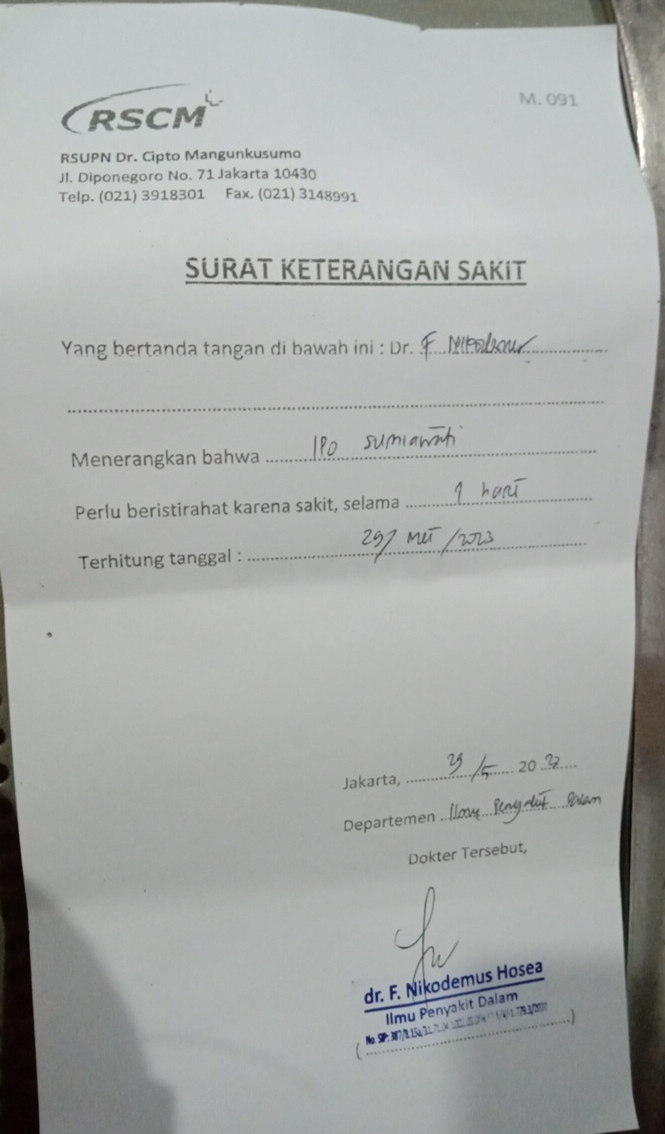 RSCM
M. 091
RSUPN Dr. Cipto Mangunkusumo
Jl. Diponegoro No. 71 Jakarta 10430
Telp. (021) 3918301 Fax. (021) 3148991
SURAT KETERANGAN SAKIT
Yang bertanda tangan di bawah ini : Dr. F
Menerangkan bahwa IPO sumiawati
Perlu beristirahat karena sakit, selama 1 hari
Terhitung tanggal : 29/ Mei /2023
Jakarta, 29 /5 20 23
Departemen Ilmu Penyakit Dalam
Dokter Tersebut,
dr. F. Nikodemus Hosea
Ilmu Penyakit Dalam
No. SIP: